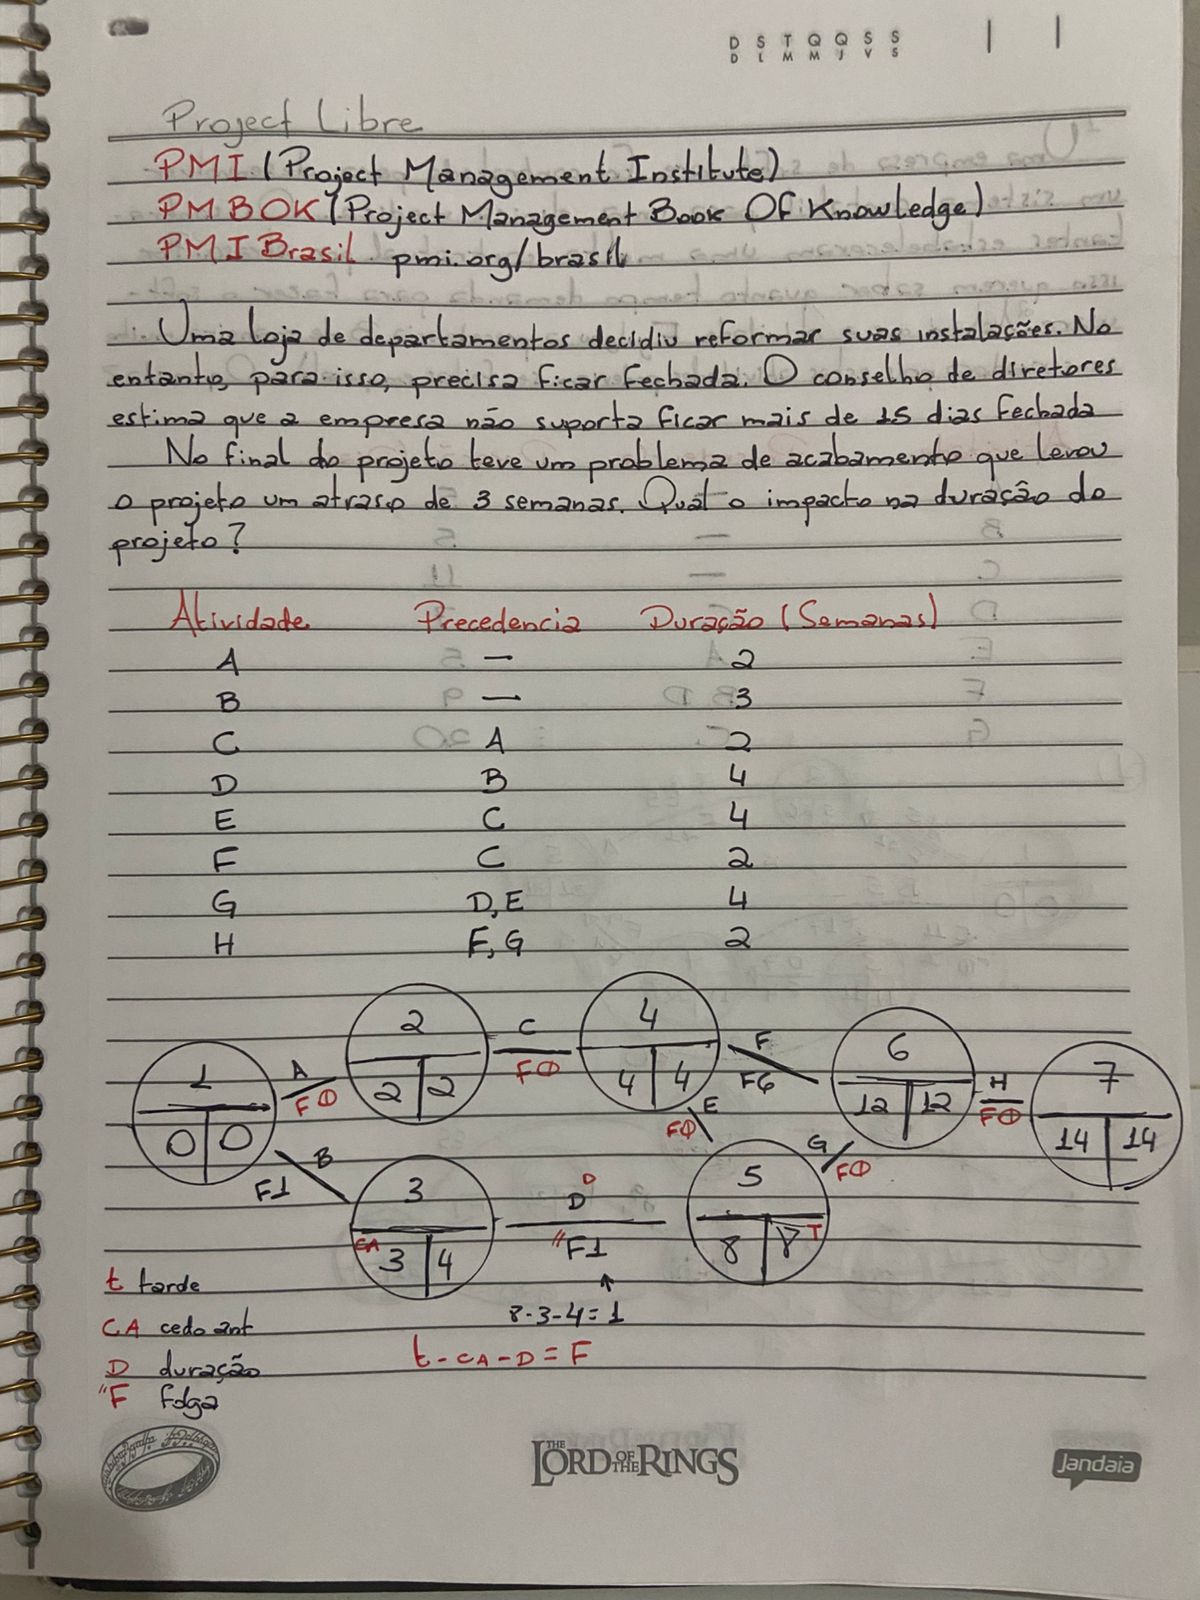 D S T Q Q S S
D L M M J V S
Project Libre
PMI (Project Management Institute)
PMBOK (Project Management Book Of Knowledge)
PMI Brasil pmi.org/brasil
Uma loja de departamentos decidiu reformar suas instalações. No
entanto, para isso, precisa ficar fechada. O conselho de diretores
estima que a empresa não suporta ficar mais de 15 dias fechada
No final do projeto teve um problema de acabamento que levou
o projeto um atraso de 3 semanas. Qual o impacto na duração do
projeto?
Atividade Precedencia Duração (Semanas)
A — 2
B — 3
C A 2
D B 4
E C 4
F C 2
G D, E 4
H F, G 2
1
0 0
A
FØ
2
2 2
C
FØ
4
4 4
F
F6
6
12 12
H
FØ
7
14 14
B
F1
3
CA 3 4
D
D
"F1
E
FØ
5
8 8 T
G
FØ
8-3-4=1
t - CA - D = F
t tarde
CA cedo ant
D duração
"F folga
THE LORD OF THE RINGS
Jandaia